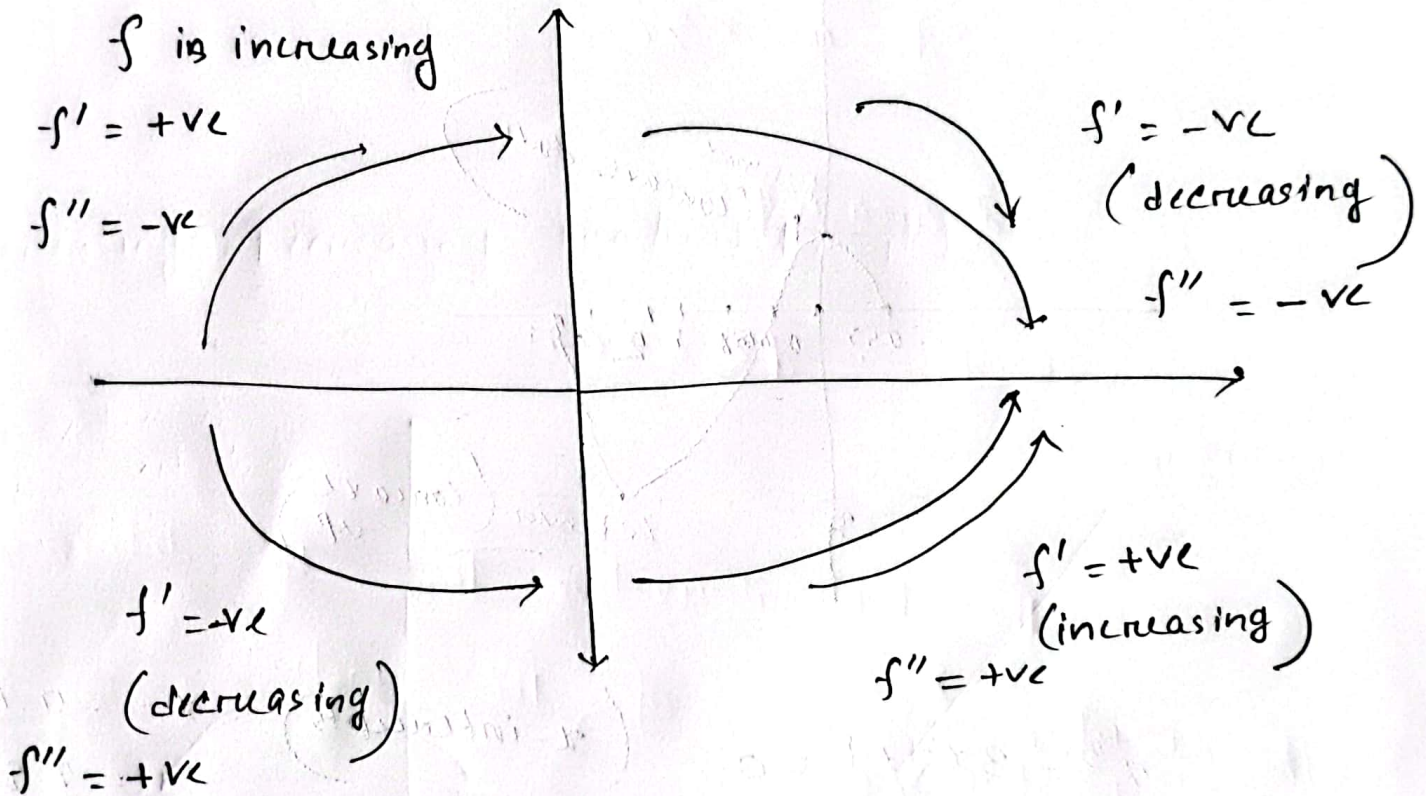 f is increasing
f' = +ve
f'' = -ve
f' = -ve
(decreasing)
f'' = -ve
f' = -ve
(decreasing)
f'' = +ve
f' = +ve
(increasing)
f'' = +ve